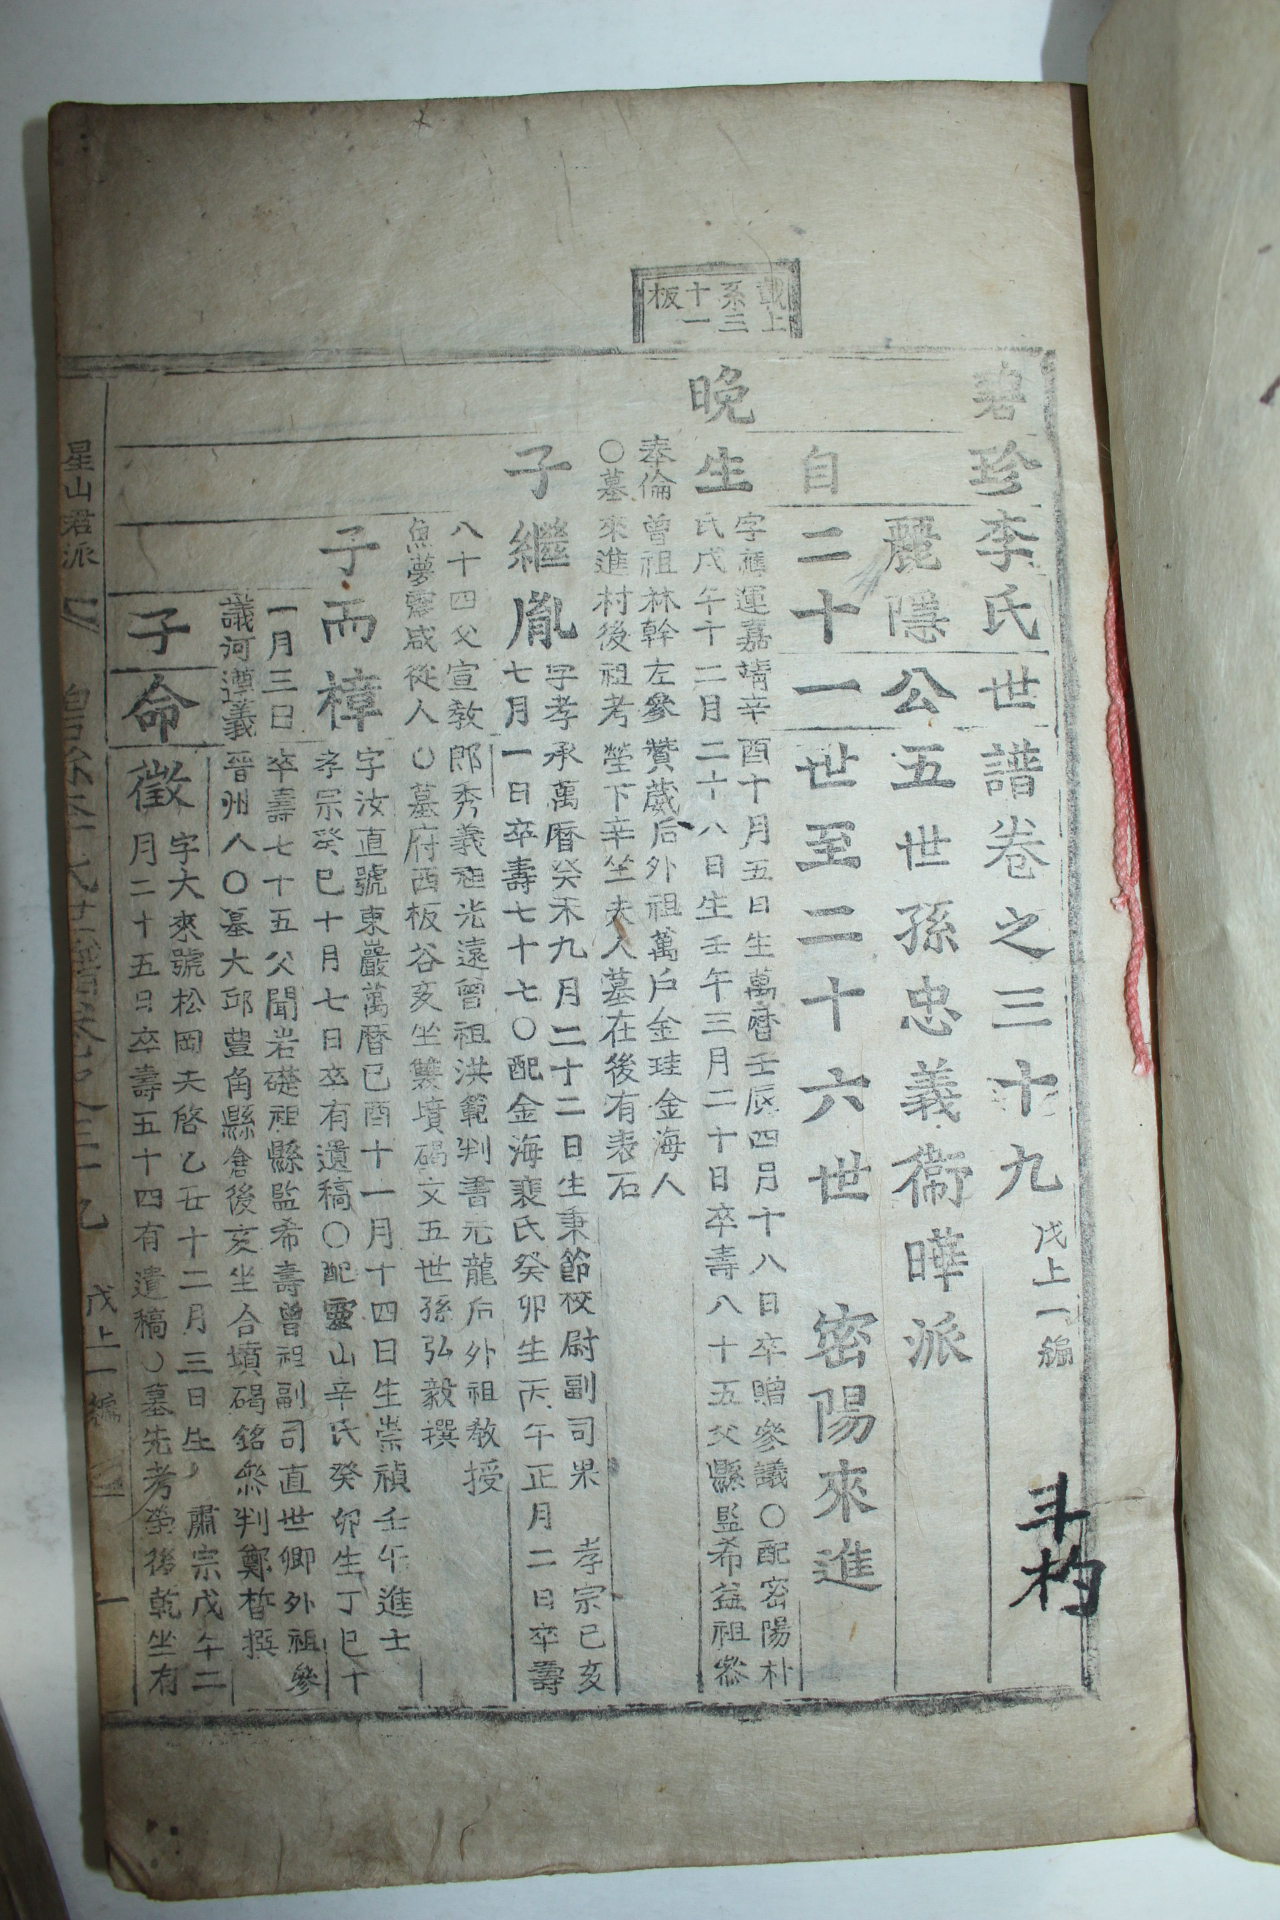 載上
系三
十一
板
碧珍李氏世譜卷之三十九 戊上一編
斗杓
麗隱公五世孫忠義衛曄派
自二十一世至二十六世 密陽來進
晩生
字應運嘉靖辛酉十月五日生萬曆壬辰四月十八日卒贈參議〇配密陽朴
氏戊午十二月二十八日生壬午三月二十日卒壽八十五父縣監希益祖參
奉倫曾祖林幹左參贊葳后外祖萬戶金珪金海人
〇墓來進村後祖考塋下辛坐夫人墓在後有表石
子繼胤
字孝承萬曆癸未九月二十二日生秉節校尉副司果 孝宗己亥
七月一日卒壽七十七〇配金海裵氏癸卯生丙午正月二日卒壽
八十四父宣敎郞秀義祖光遠曾祖洪範判書元龍后外祖敎授
魚夢 咸從人〇墓府西板谷亥坐雙墳碣文五世孫弘毅撰
子而樟
字汝直號東巖萬曆己酉十一月十四日生崇禎壬午進士
孝宗癸巳十月七日卒有遺稿〇配靈山辛氏癸卯生丁巳十
一月三日卒壽七十五父聞岩礎祖縣監希壽曾祖副司直世卿外祖參
議河遵義晉州人〇墓大邱豊角縣倉後亥坐合墳碣銘參判鄭 撰
子命徵
字大來號松岡天啓乙丑十二月三日生 肅宗戊午二
月二十五日卒壽五十四有遺稿〇墓先考塋後乾坐有
星山君派
碧珍李氏世譜卷之三十九 戊上一編 一